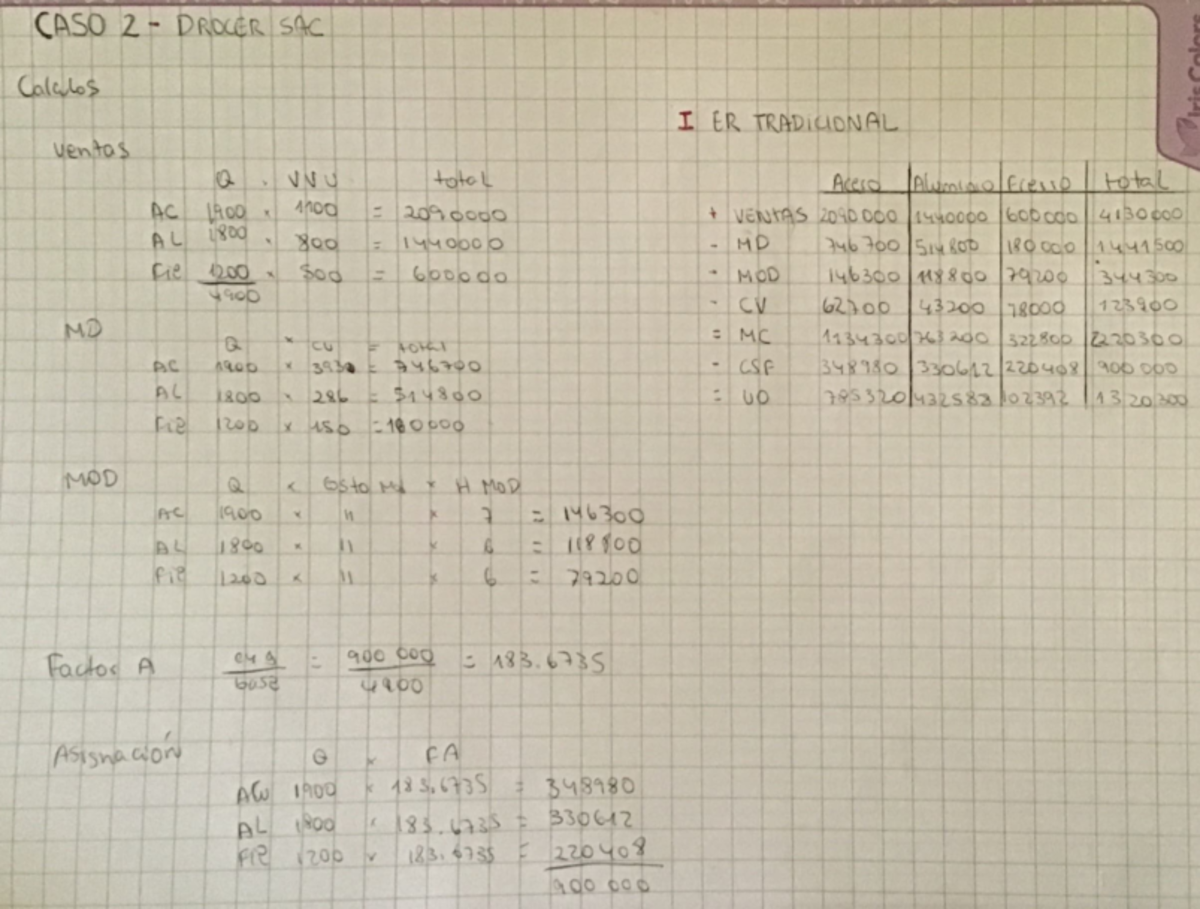 CASO 2 - DROCER SAC
Calculos
Ventas
Q . VVU total
AC 1900 × 1100 = 2090000
AL 1800 × 800 = 1440000
Fie 1200 × 500 = 600000
4900
MD
Q × CU = total
AC 1900 × 393 = 746700
AL 1800 × 286 = 514800
Fie 1200 × 150 = 180000
MOD
Q × Costo Md × H MOD
AC 1900 × " × 7 = 146300
AL 1800 × " × 6 = 118800
Fie 1200 × " × 6 = 79200
Factor A = 900 000 = 183.6735
Base 4900
Asignación
Q × FA
1900 × 183.6735 = 348980
AL 1800 × 183.6735 = 330612
Fie 1200 × 183.6735 = 220408
900 000
I ER TRADICIONAL
Acero Aluminio Fierro total
+ VENTAS 2090000 1440000 600000 4130000
- MD 746700 514800 180000 1441500
- MOD 146300 118800 79200 344300
- CV 62700 43200 18000 123900
= MC 1134300 763200 322800 2220300
- CSF 348980 330612 220408 900000
= UO 785320 432588 102392 1320300